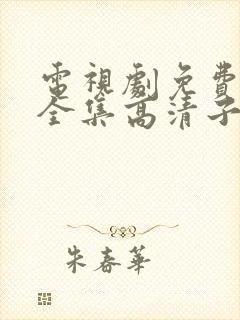 電視劇免費
全集高清子
朱春華